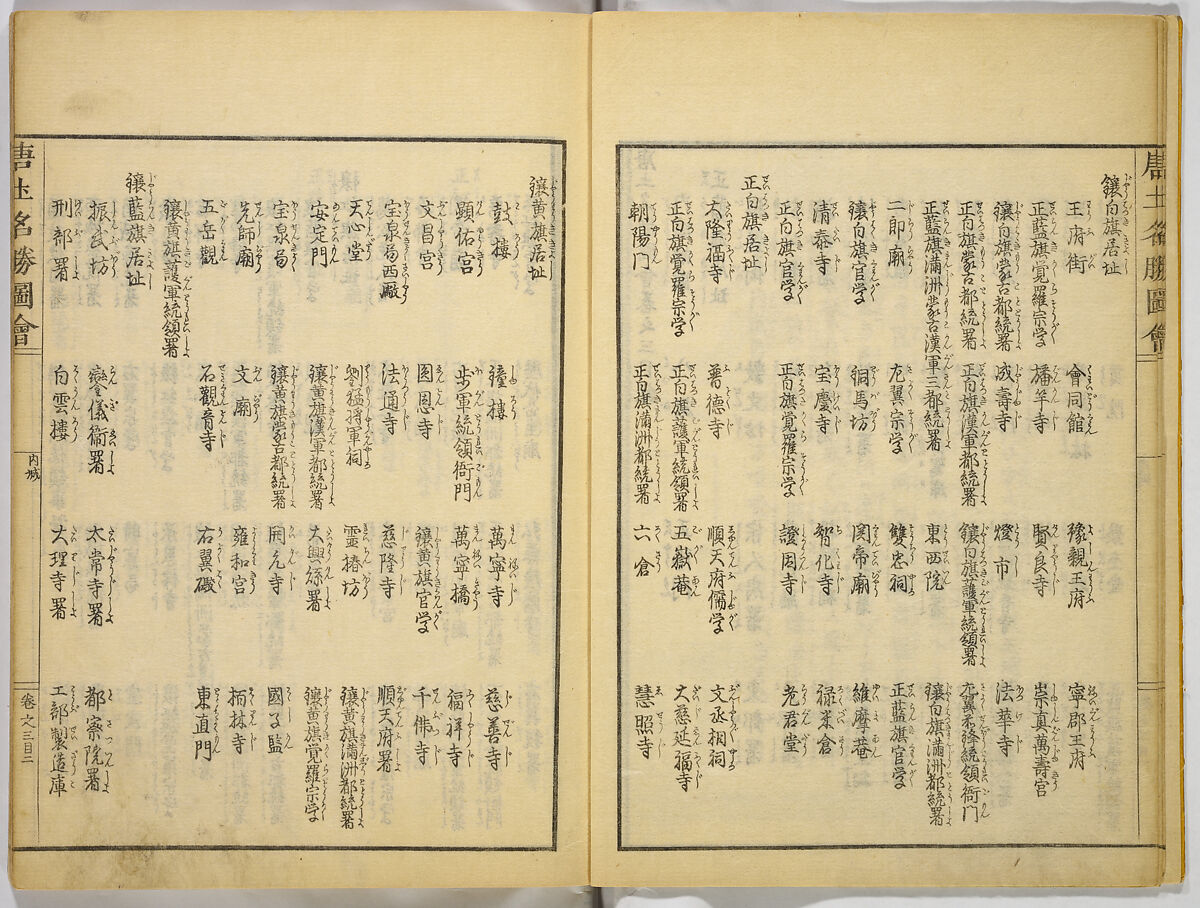 唐土名勝圖會
鑲白旗居址
王府街 會同館 豫親王府 寧郡王府
正藍旗覺羅宗学 旛竿寺 賢良寺 崇真萬壽宮
鑲白旗蒙古都統署 成壽寺 燈市 法華寺
正白旗蒙古都統署 正白旗漢軍都統署 鑲白旗護軍統領署 左翼歩軍統領衙門
正藍旗滿洲蒙古漢軍三都統署 東西院 鑲白旗滿洲都統署
二郎廟 左翼宗学 雙忠祠 正藍旗官学
鑲白旗官学 銅馬坊 関帝廟 維摩菴
清泰寺 宝慶寺 智化寺 禄米倉
正白旗官学 正白旗覚羅宗学 證因寺 老君堂
正白旗居址
大隆福寺 普德寺 順天府儒学 文丞相祠
正白旗覺羅宗学 正白旗護軍統領署 五嶽菴 大慈延福寺
朝陽門 正白旗滿洲都統署 六倉 慧照寺
鑲黄旗居址
鼓樓 鐘樓 萬寧寺 慈善寺
顕佑宮 歩軍統領衙門 萬寧橋 福祥寺
文昌宮 圓恩寺 鑲黄旗官学 千佛寺
宝泉局西廠 法通寺 慈隆寺 順天府署
天心堂 劉猛将軍祠 靈椿坊 鑲黄旗滿洲都統署
安定門 鑲黄旗漢軍都統署 大興縣署 鑲黄旗覚羅宗学
宝泉局 鑲黄旗蒙古都統署 開元寺 國子監
先師廟 文廟 雍和宮 栢林寺
五岳觀 石觀音寺 右翼礮 東直門
鑲黄旗護軍統領署
鑲藍旗居址
振武坊 鑾儀衛署 太常寺署 都察院署
刑部署 白雲樓 大理寺署 工部製造庫
唐土名勝圖會
内城
卷之三目三